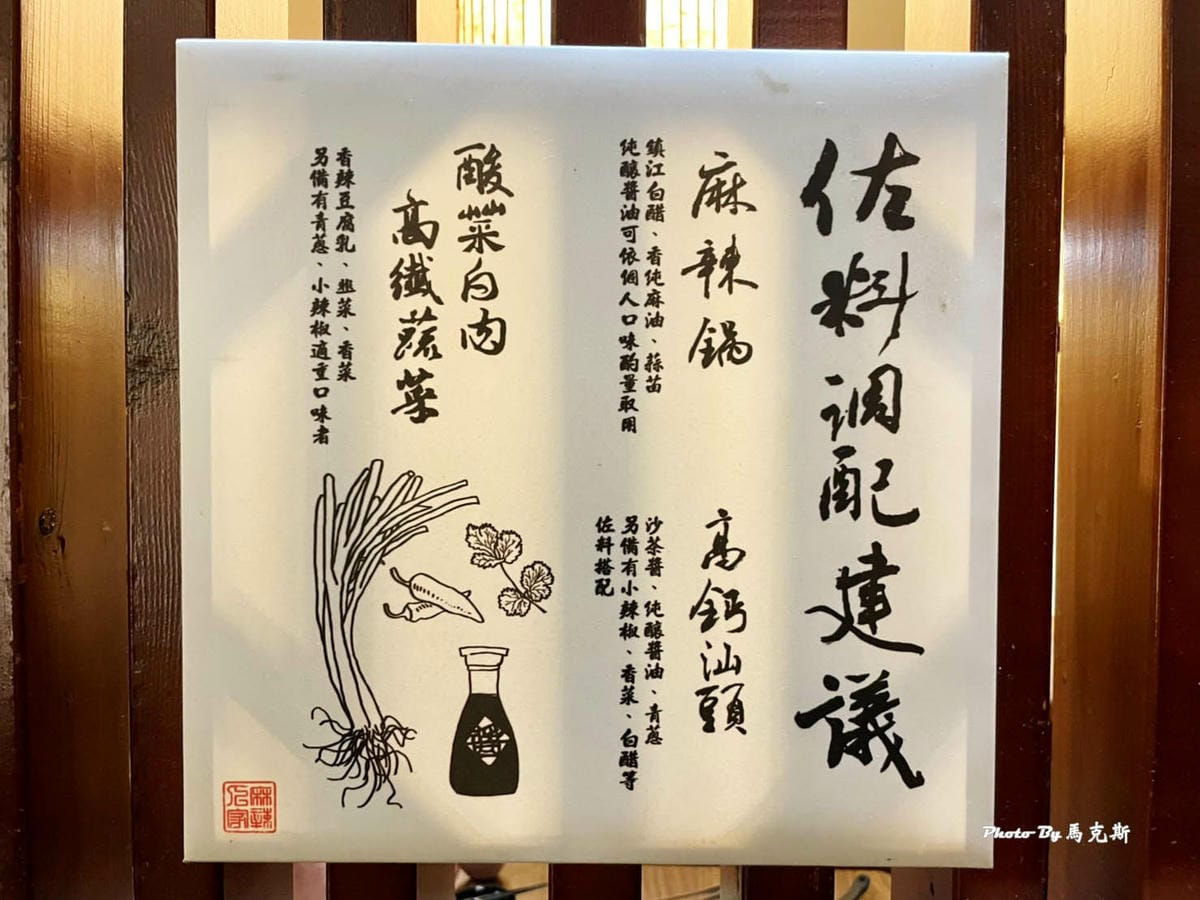 佐料调配建議
麻辣鍋
鎮江白醋、香純麻油、蒜苗
純釀醬油可依個人口味酌量取用
高鈣汕頭
沙茶醬、純釀醬油、青蔥
另備有小辣椒、香菜、白醋等
佐料搭配
酸菜白肉
高纖蔬菜
香辣豆腐乳、韭菜、香菜
另備有青蔥、小辣椒適重口味者
麻辣
人家
Photo By 馬克斯